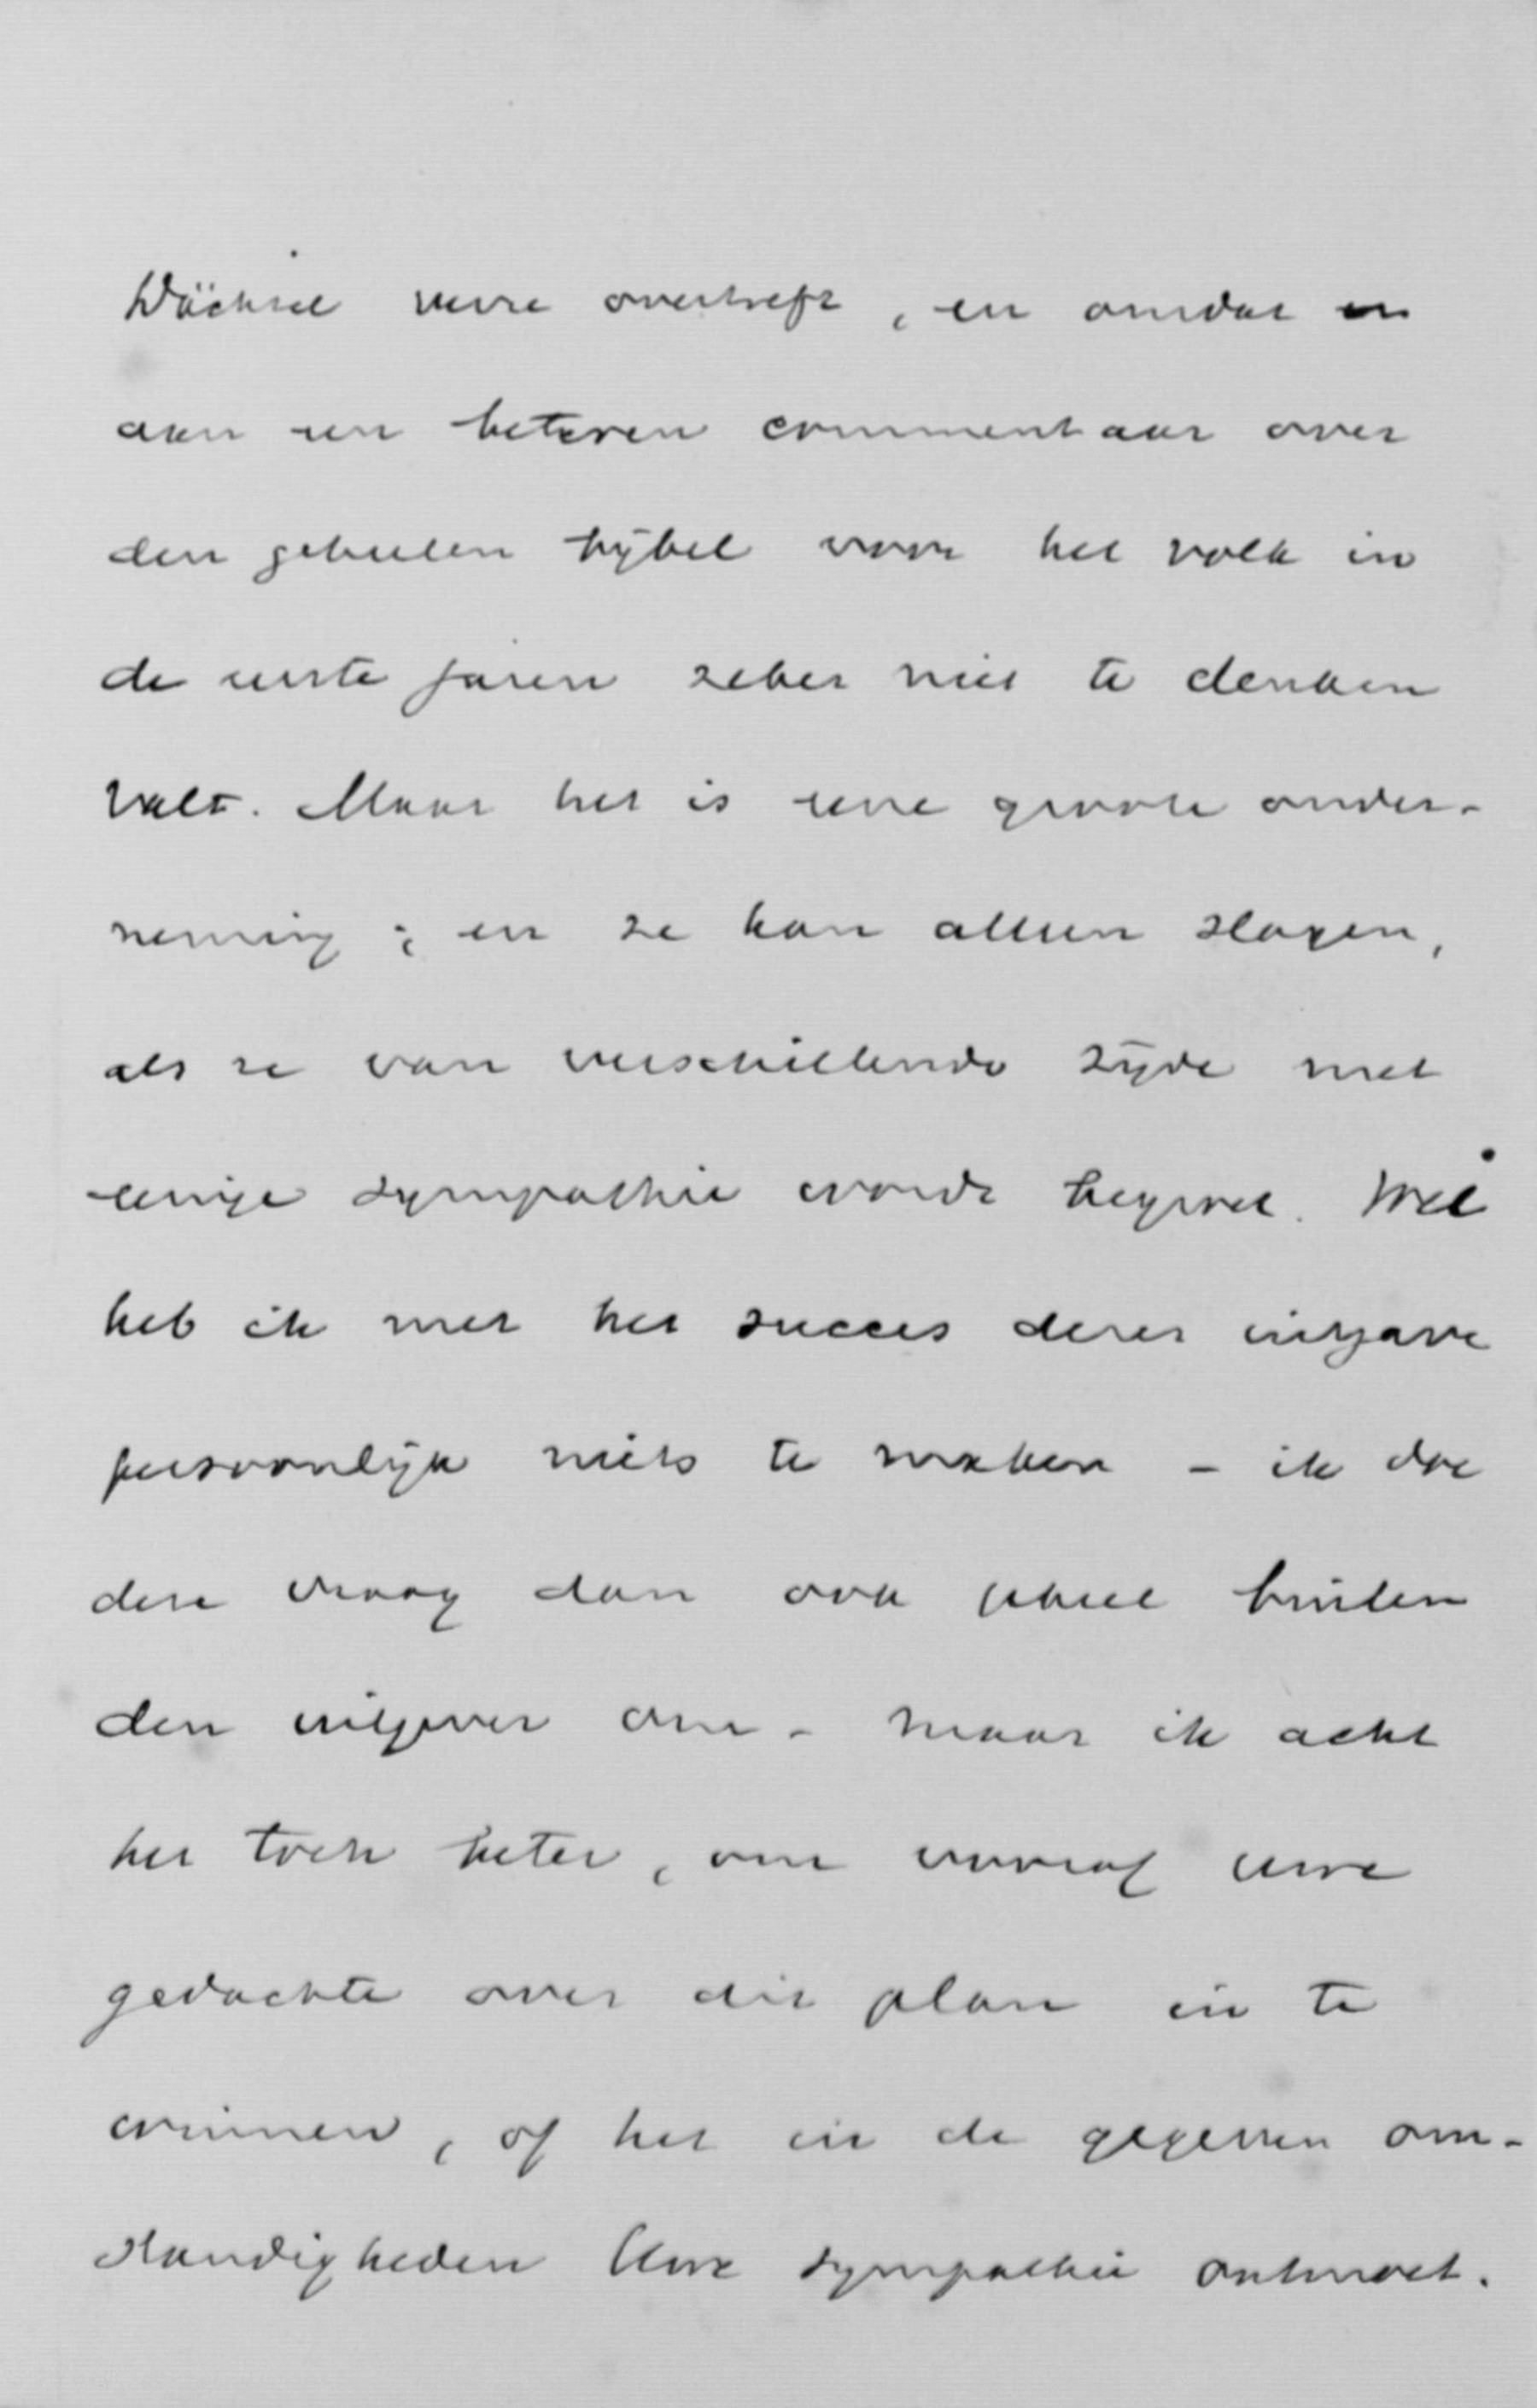 Dächsel verre overtreft, en omdat er
aan een beteren commentaar over
den geheelen bijbel voor het volk in
de eerste jaren zeker niet te denken
valt. Maar het is eene groote onder-
neming; en ze kan alleen slagen,
als ze van verschillende zijde met
eenige sympathie worde begroet. Wel
heb ik met het succes dezer uitgave
persoonlijk niets te maken - ik doe
deze vraag dan ook geheel buiten
den uitgever om - maar ik acht
het toch beter, om vooraf Uwe
gedachte over dit plan in te
winnen, of het in de gegeven om-
standigheden Uwe sympathie ontmoet.